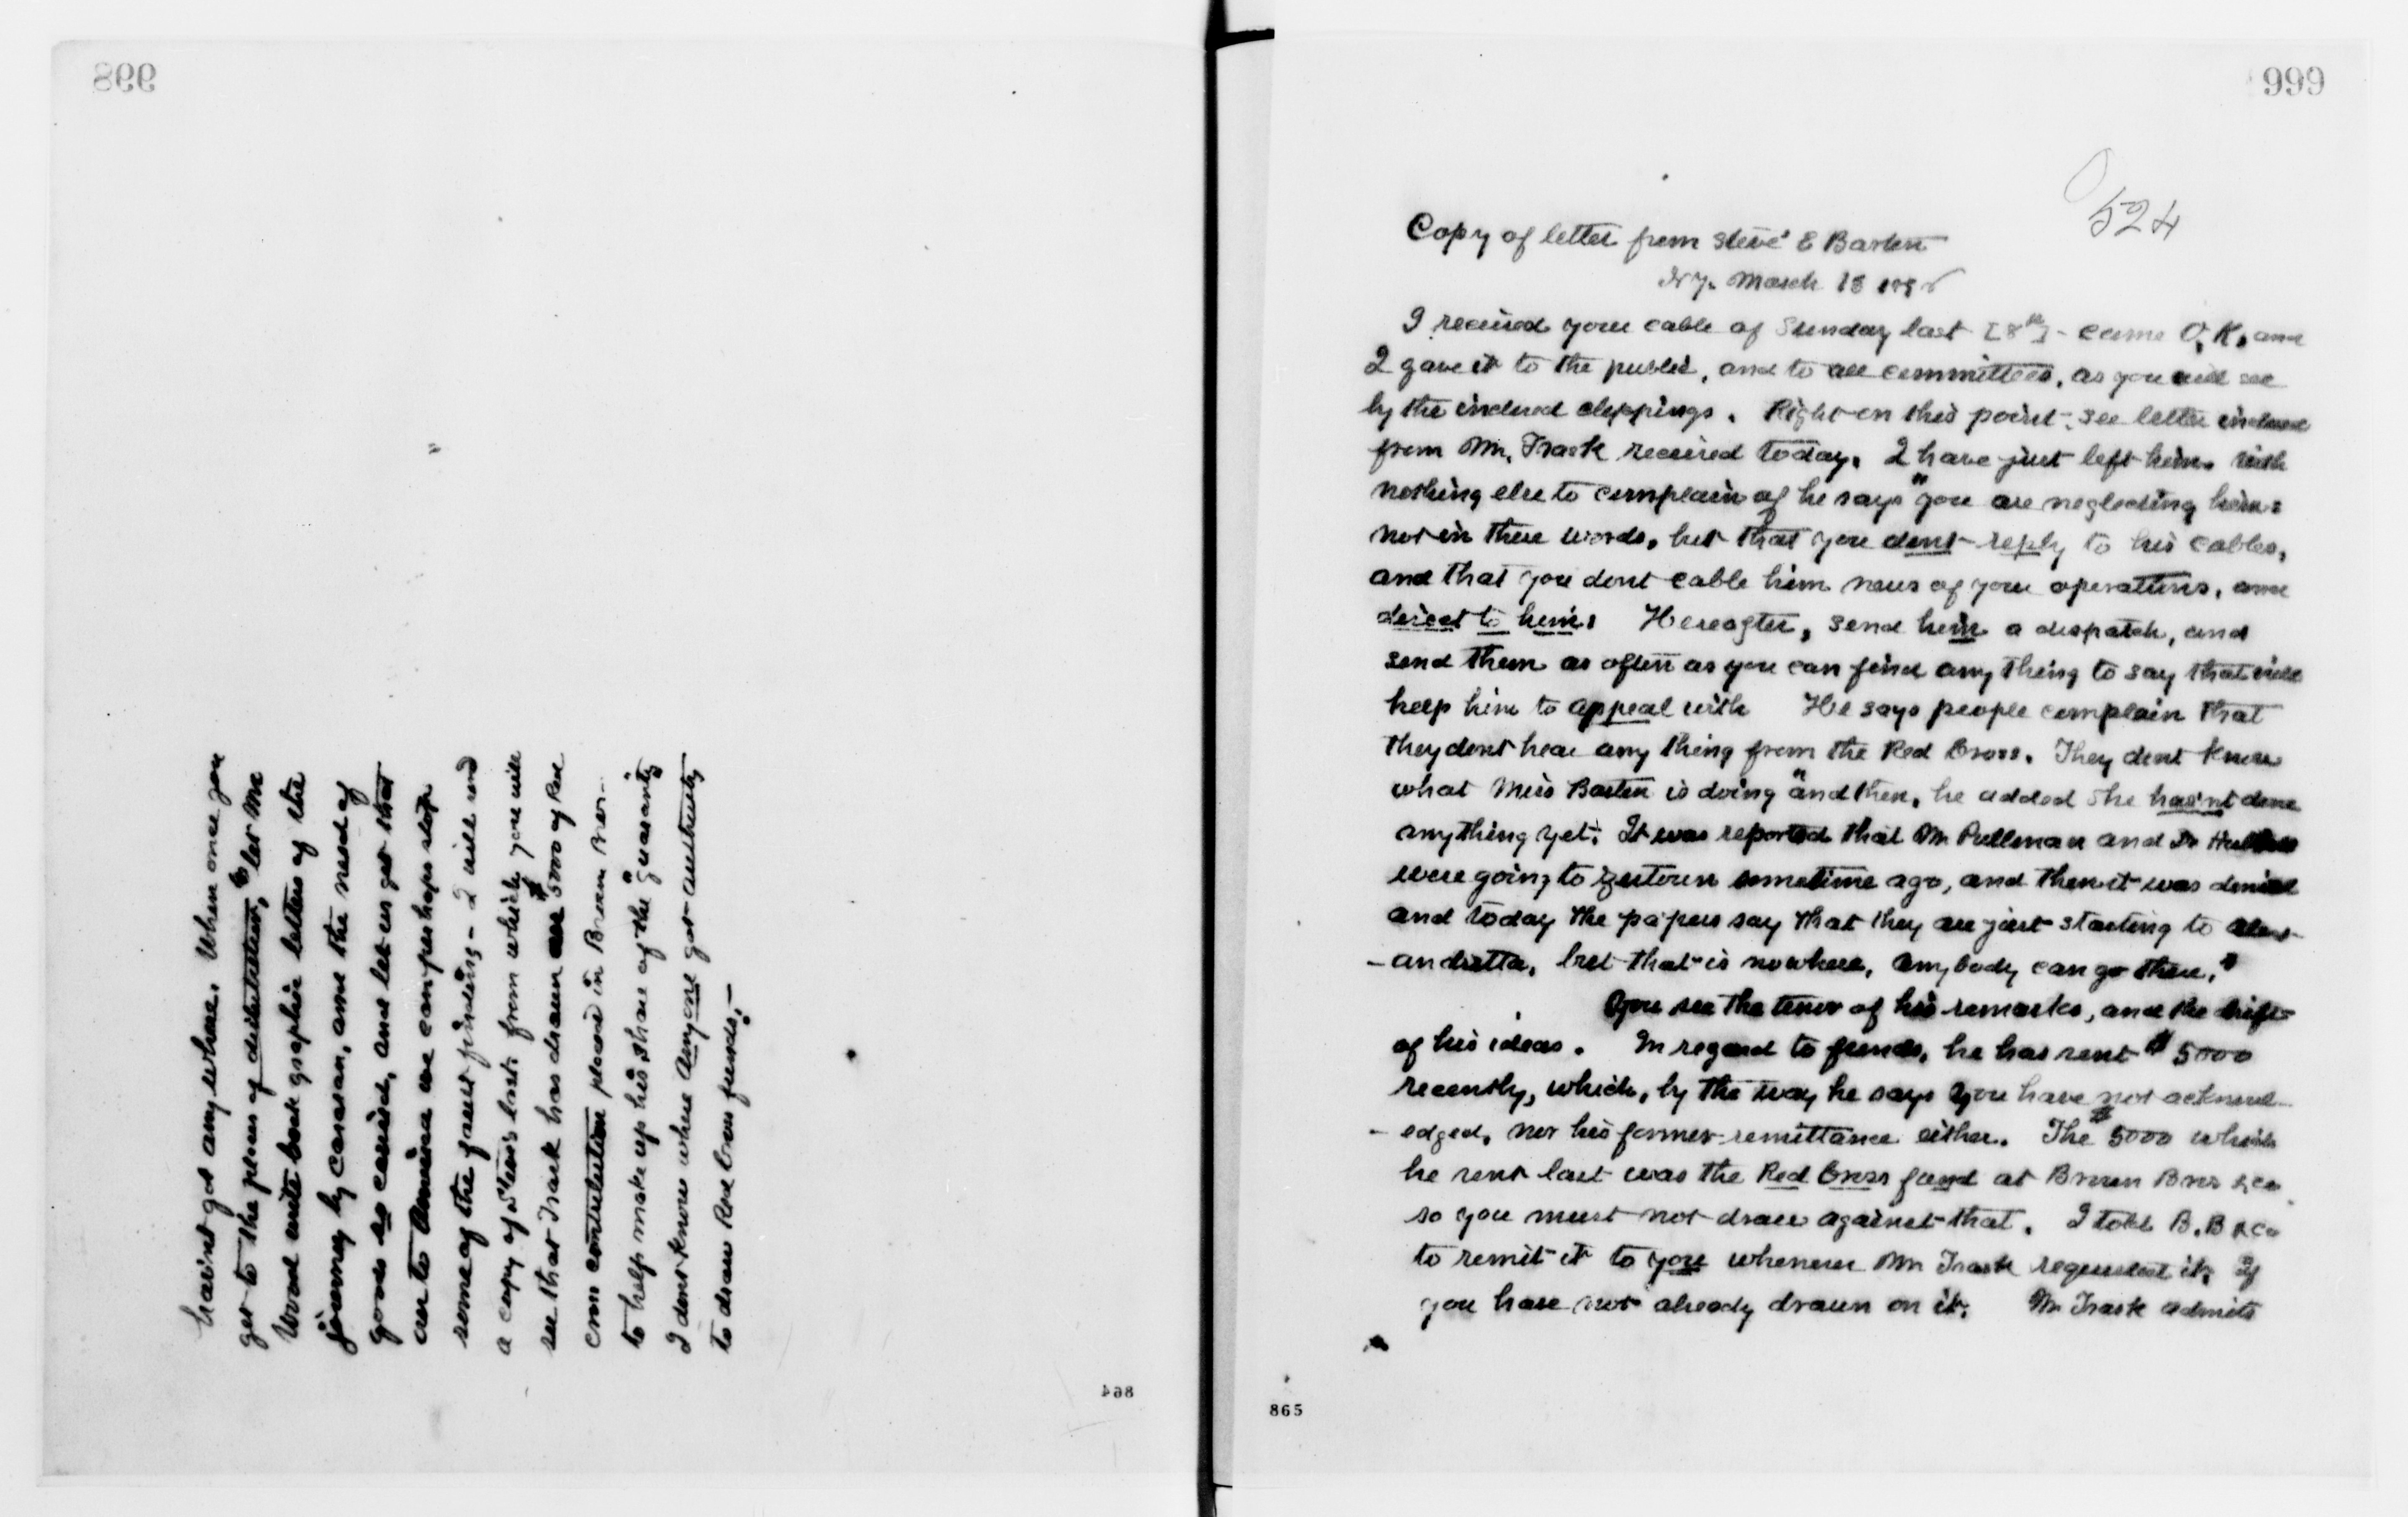 998
havint got any where. When once you
get to the places of distribution, let Mr
Wood write back graphic letters of the
journey by caravan, and the need of
goods so carried, and let us get that
over to America we can perhaps stop
some of the fault finding - I will send
a copy of Steve's last from which you will
see that Trask has drawn our $5000 of Red
Cross contribution placed in Brown Bros -
to help make up his share of the "guaranty"
I dont know where anyone got authority
to draw Red Cross funds. -
864
999
524
Copy of letter from Steve E Barton
N.Y. March 18
I received your cable of Sunday last [8th] - came O.K. and
I gave it to the public, and to all committees, as you will see
by the inclosed clippings. Right on this point - see letter inclosed
from Mr. Trask received today. I have just left him. with
nothing else to complain of he says "you are neglecting him:
not in these words, but that you dont reply to his cables,
and that you dont cable him news of your operations, and
direct to him. Hereafter, send him a dispatch, and
send them as often as you can find any thing to say that will
help him to appeal with He says people complain that
they dont hear any thing from the Red Cross. They dont know
what Miss Barton is doing "and then, he added she hasn't done
anything yet. It was reported that Mr Pullman and Dr Hubbell
were going to Zeitoun sometime ago, and then it was denied
and today the papers say that they are just starting to Alex-
-andretta, but that is nowhere, anybody can go there,"
You see the tenor of his remarks, and the drift
of his ideas. In regard to funds, he has sent $5000
recently, which, by the way he says you have not acknowl-
-edged, nor his former remittance either. The $5000 which
he sent last was the Red Cross fund at Brown Bros & Co
so you must not draw against that. I told B. B & Co
to remit it to you whenever Mr Trask requested it, if
you have not already drawn on it. Mr Trask admits
865